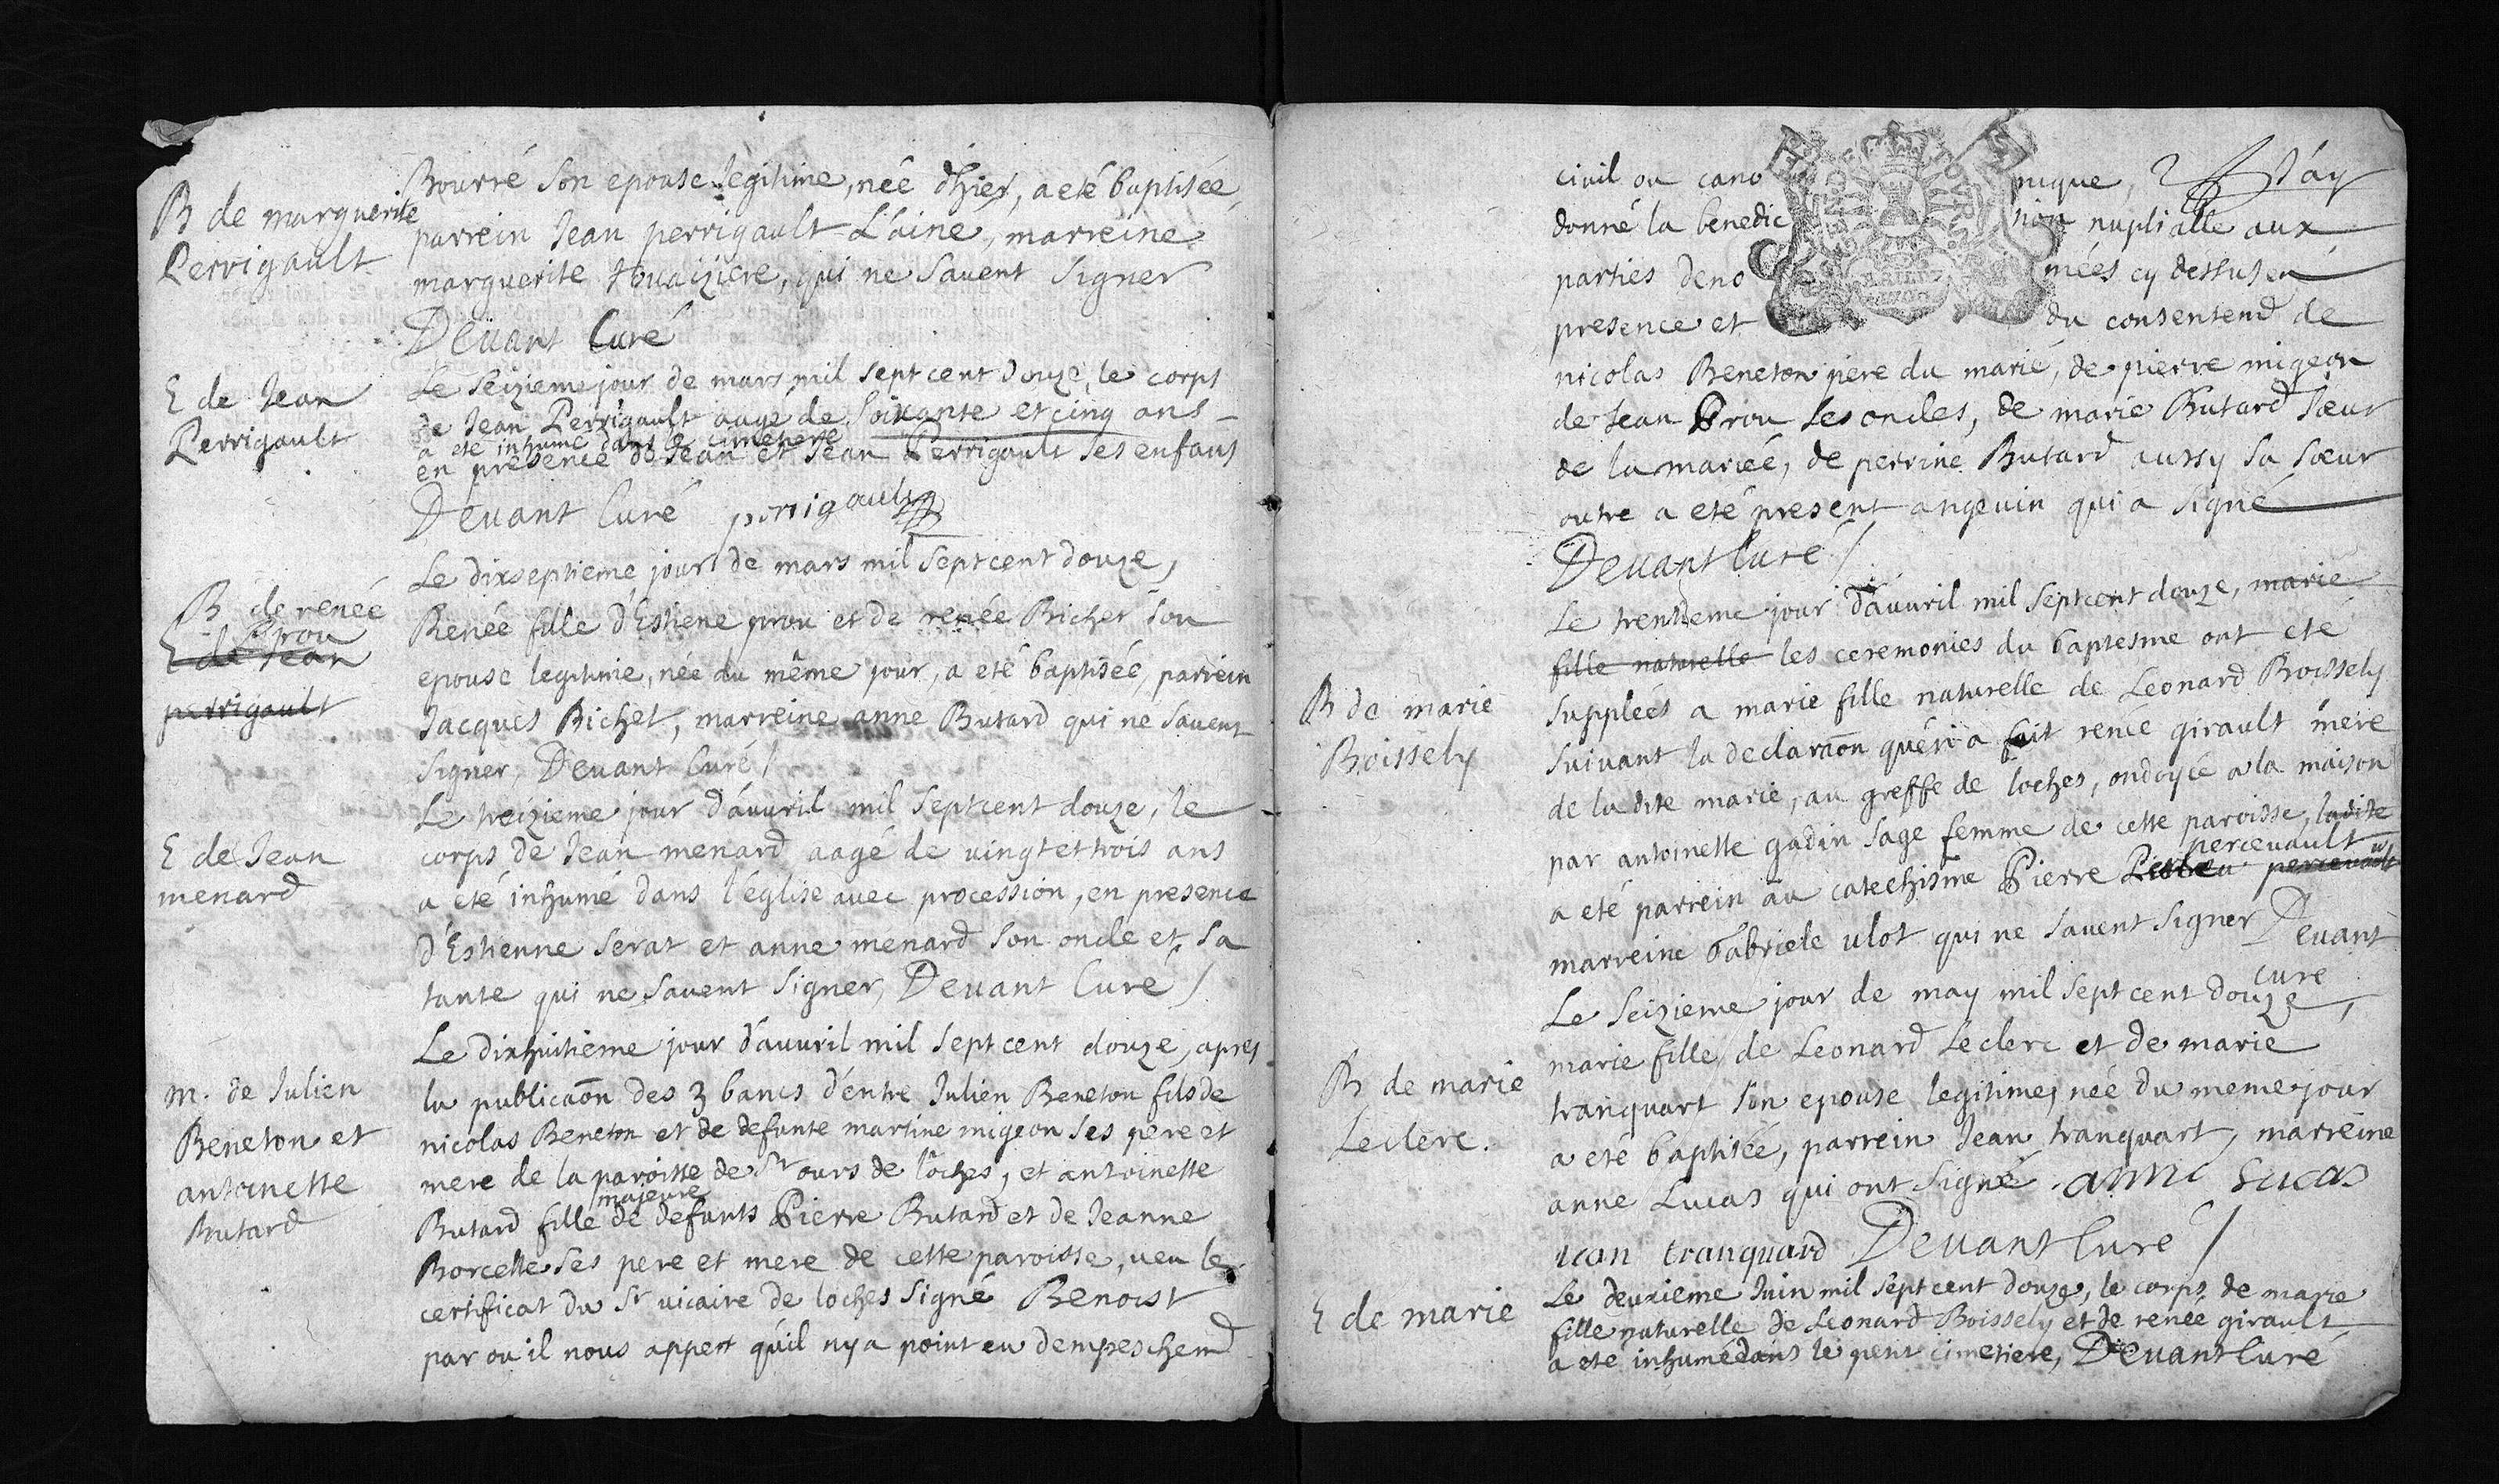 B de marguerite
Perrigault
Bourré son epouse legitime, née d'hier, a eté baptisée,
parrein Jean perrigault L'ainé, marreine
marguerite touaiziere, qui ne savent signer
Devant Curé
E de Jean
Perrigault
Le seizieme jour de mars mil sept cent douze, le corps
de Jean Perrigault aagé de soixante et cinq ans
a eté inhumé dans le cimetiere
en presence de Jean et Jean Perrigault ses enfans
Devant Curé perrigault
B de renée
Prou
E de Jean
perrigault
Le dixseptieme jour de mars mil sept cent douze,
Renée fille d'Estiene prou et de renée Richer son
epouse legitime, née du même jour, a eté baptisée, parrein
Jacques Richet, marreine anne Butard qui ne savent
signer, Devant Curé /
E de Jean
menard
Le treizieme jour d'auvril mil sept cent douze, le
corps de Jean menard aagé de vingt et trois ans
a eté inhumé dans l'église avec procession, en presence
d'Estienne serat et anne menard son oncle et sa
tante qui ne savent signer, Devant Curé /
m. de Julien
Beneton et
antoinette
Butard
Le dixhuitième jour d'auvril mil sept cent douze, apres
la publicaõn des 3 bancs d'entre Julien Beneton fils de
nicolas Beneton et de defunte martine migeon ses pere et
mere de la paroisse de St ours de loches, et antoinette
majeure
Butard fille de defunts Pierre Butard et de Jeanne
Borcelle ses pere et mere de cette paroisse, veu le
certificat du Sr vicaire de loches signé Benoist
par ou il nous appert qu'il ny a point eu dempeschemd
civil ou cano nique, J'ay
donné la benedic tion nuptialle aux
parties deno mées cy dessus en
presence et du consentemd de
nicolas Beneton pere du marié, de pierre migeon
de Jean Prou ses oncles, de marie Butard sœur
de la mariée, de perrine Butard aussy sa sœur
outre a eté present angevin qui a signé
Devant Curé /
B de marie
Boissely
Le trentieme jour d'auvril mil sept cent douze, marie
fille naturelle les ceremonies du baptesme ont eté
supplées a marie fille naturelle de Leonard Boissely
suivant la declaraõn qu'en a fait renée girault mere
de la dite marie, au greffe de loches, ondoyée a la maison
par antoinette gadin sage femme de cette paroisse, ladite
percevault
a eté parrein au catechisme Pierre percevault
marreine Gabriele ulot qui ne savent signer Devant
Curé
B de marie
Leclerc.
Le seizieme jour de may mil sept cent douze,
marie fille de Leonard Leclerc et de marie
tranquart son epouse legitime, née du meme jour
a eté baptisée, parrein Jean tranquart, marreine
anne Lucas qui ont signé . anne Lucas
iean tranquard Devant Curé /
E de marie
Le deuxieme Juin mil sept cent douze, le corps de marie
fille naturelle de Leonard Boissely et de renée girault
a eté inhumé dans le petit cimetiere, Devant Curé